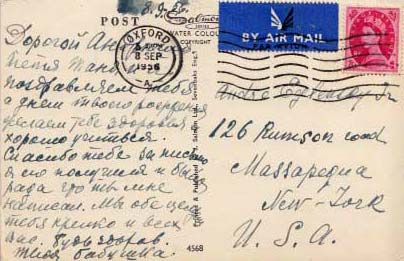 POST
Salmon
SERIES
WATER COLOUR
COPYRIGHT
BY AIR MAIL
PAR AVION
OXFORD
8 SEP
1956
Дорогой
Петя Таня
поздравляем тебя
с днем твоего рождения
желаем тебе здоровья
хорошо учиться.
Спасибо тебе за письмо
я его получила и был
рада что ты мне
написал. Мы обе
тебя крепко и всех
вас. Будь здоров.
Твоя бабушка.
126 road
Massapequa
New-York
U.S.A.
4568